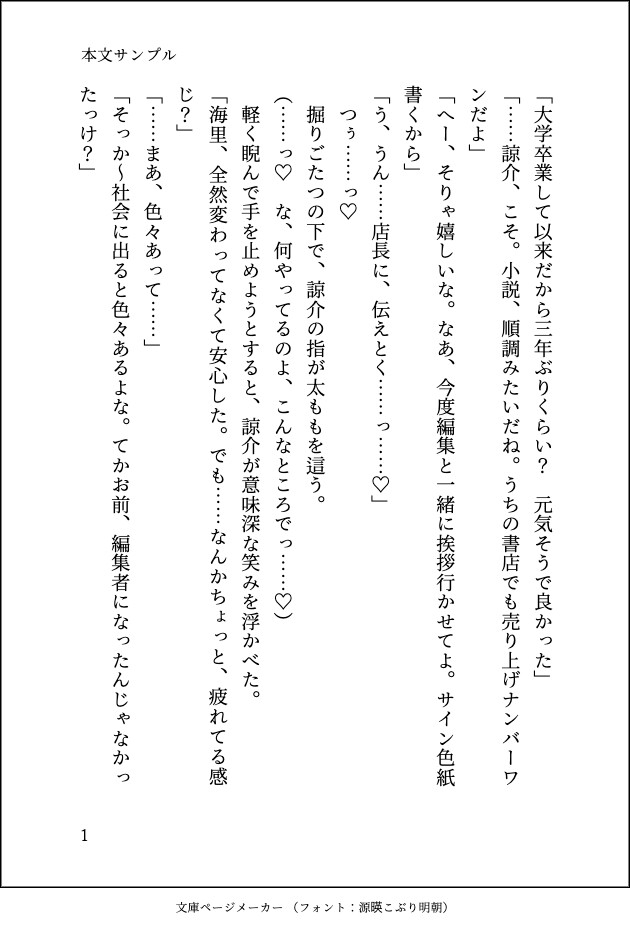 本文サンプル
「大学卒業して以来だから三年ぶりくらい？　元気そうで良かった」
「……諒介、こそ。小説、順調みたいだね。うちの書店でも売り上げナンバーワ
ンだよ」
「へー、そりゃ嬉しいな。なあ、今度編集と一緒に挨拶行かせてよ。サイン色紙
書くから」
「う、うん……店長に、伝えとく……っ……♡」
つぅ……っ♡
掘りごたつの下で、諒介の指が太ももを這う。
（……っ♡　な、何やってるのよ、こんなところでっ……♡）
軽く睨んで手を止めようとすると、諒介が意味深な笑みを浮かべた。
「海里、全然変わってなくて安心した。でも……なんかちょっと、疲れてる感
じ？」
「……まあ、色々あって……」
「そっか～社会に出ると色々あるよな。てかお前、編集者になったんじゃなかっ
たっけ？」
1
文庫ページメーカー（フォント：源暎こぶり明朝）